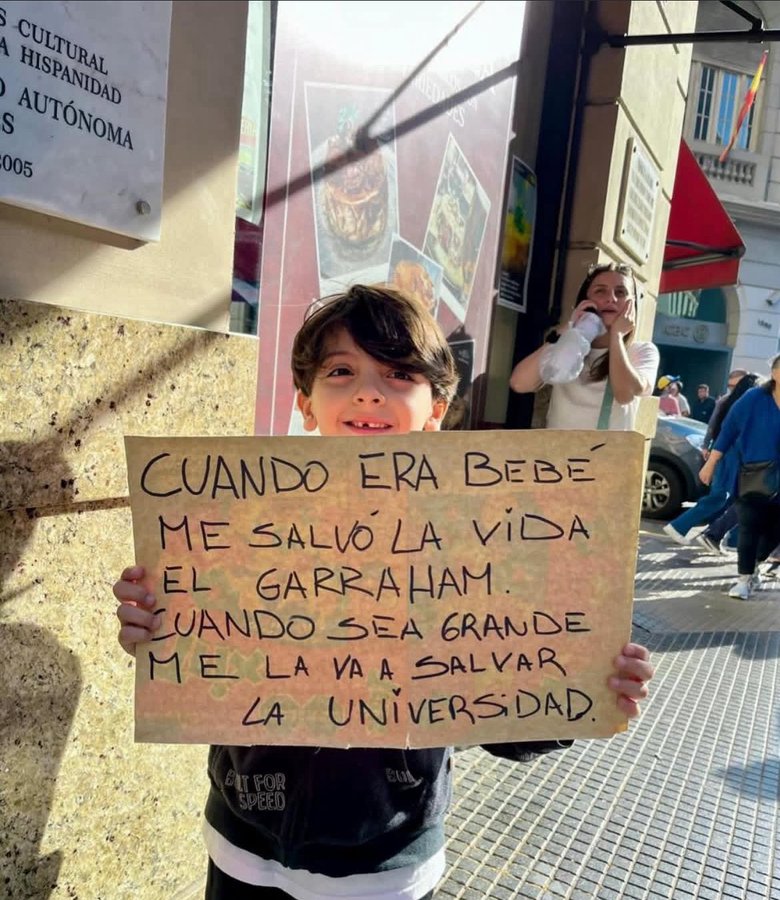 S CULTURAL
A HISPANIDAD
O AUTÓNOMA
ES
2005
CUANDO ERA BEBÉ
ME SALVÓ LA VIDA
EL GARRAHAM.
CUANDO SEA GRANDE
ME LA VA A SALVAR
LA UNIVERSIDAD.
BUILT FOR
SPEED